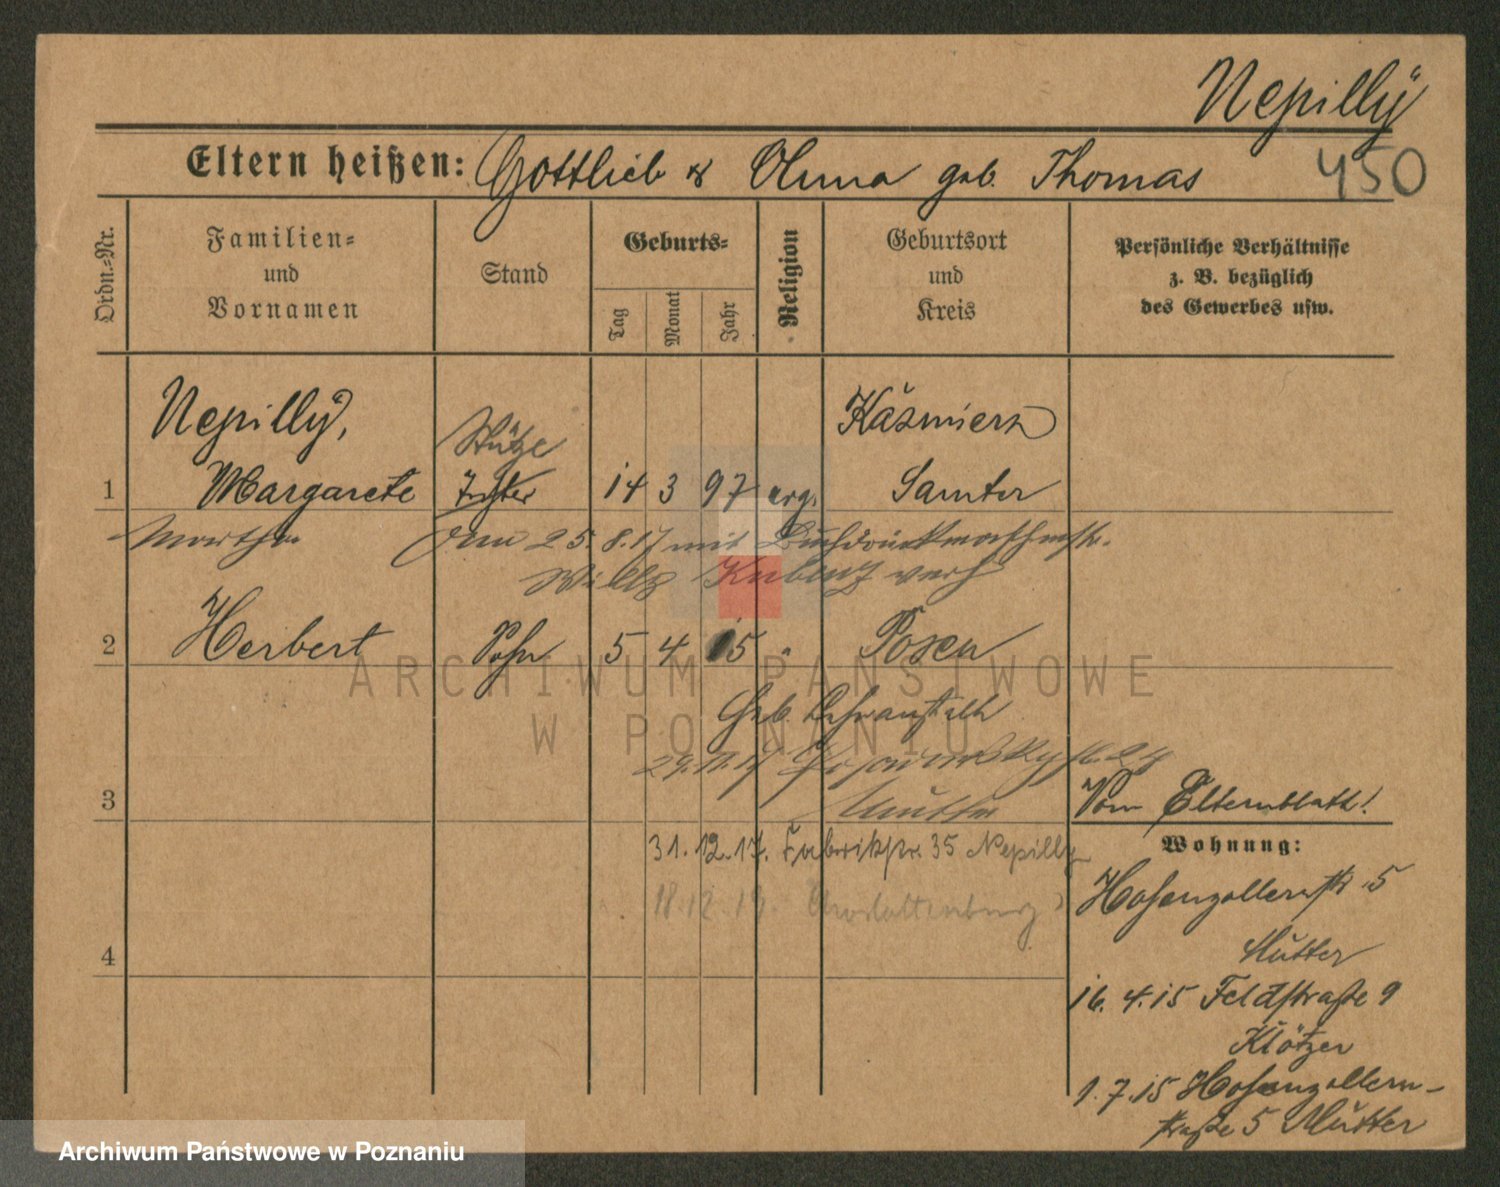 Nepilly
450
Eltern heißen: Gottlieb & Anna geb. Thomas
Ordn.-Nr.
Familien-
und
Vornamen
Stand
Geburts-
Tag
Monat
Jahr
Religion
Geburtsort
und
Kreis
Persönliche Verhältnisse
z. B. bezüglich
des Gewerbes usw.
Nepilly,
Kaźmierz
Stütze
1 Margarete 14 3 97 evg. Samter
Martha 25.8.17 mit
verh
2 Herbert Sohn 5 4 15 " Posen
Geb.
29.11.17 24
Mutter
3 Vom Elternblatt!
31.12.17. Fabrikstr. 35 Nepilly
18.12.19. Charlottenburg
4
Wohnung:
Hohenzollernstr 5
Mutter
16.4.15 Feldstraße 9
Klötzer
1.7.15 Hohenzollern-
straße 5 Mutter
ARCHIWUM PAŃSTWOWE
W POZNANIU
Archiwum Państwowe w Poznaniu